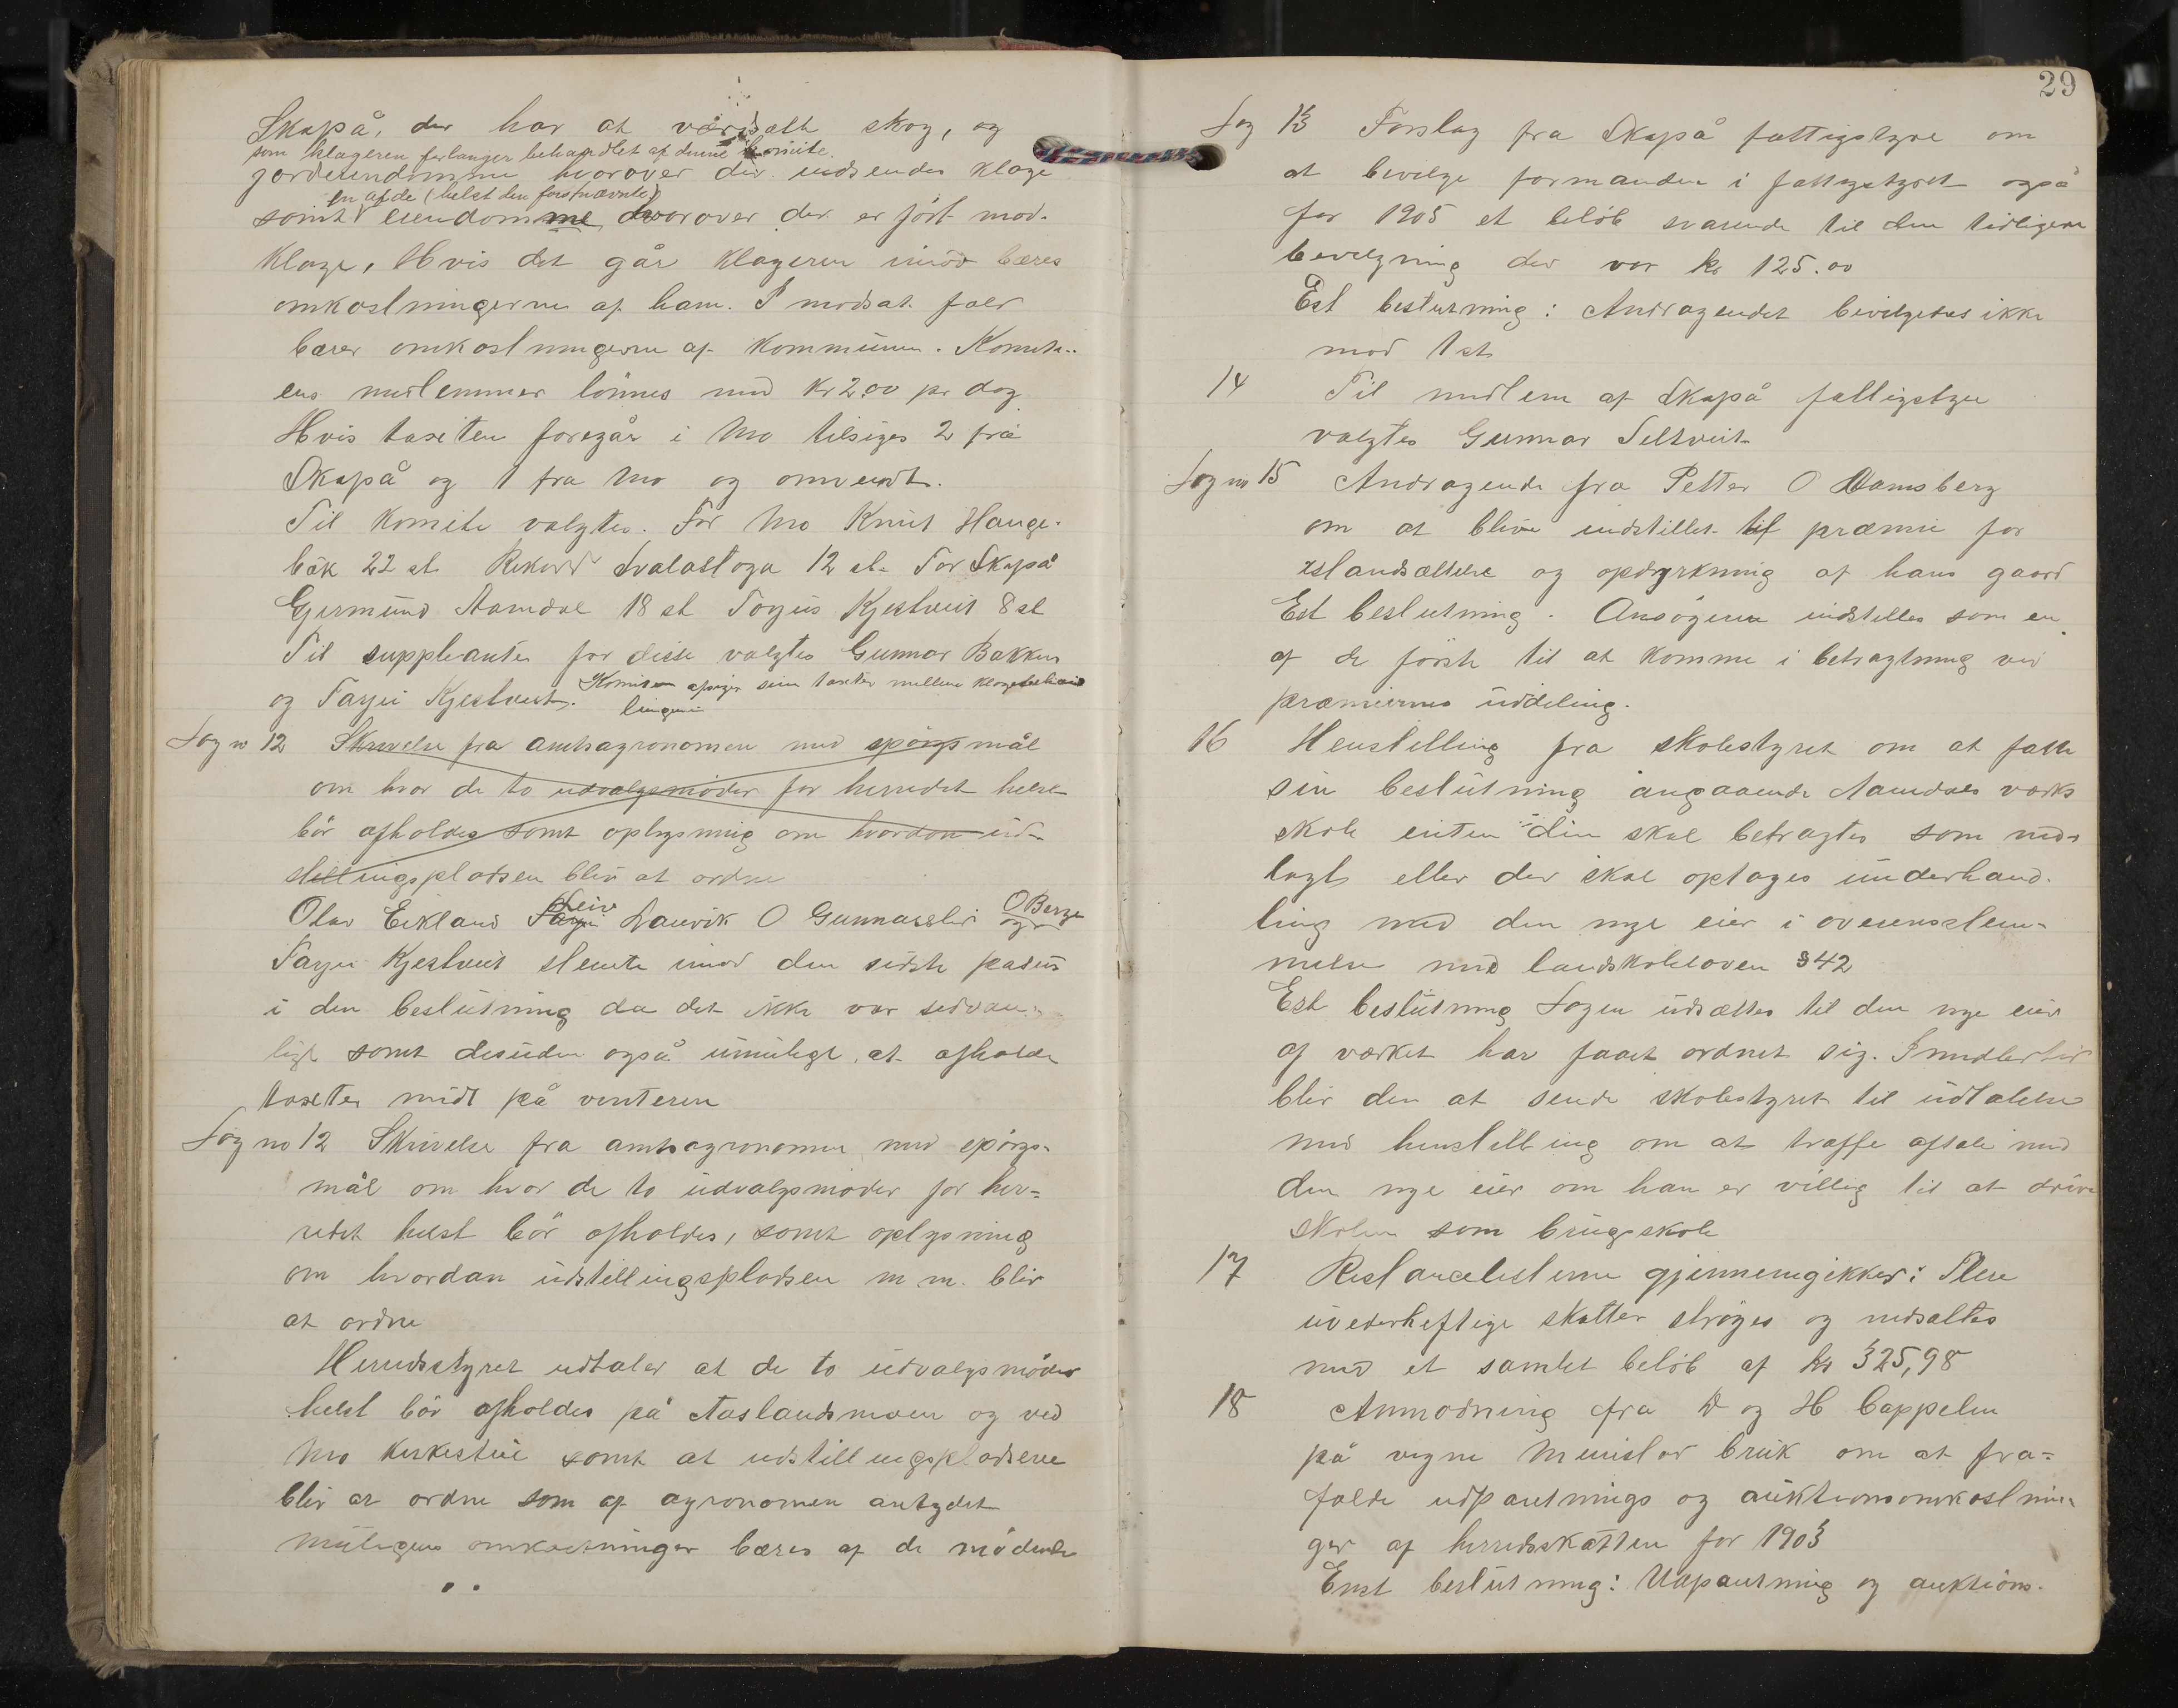 Skapå, der har at værdsætte skog, og
som klageren forlanger behandlet af denne komite.
jordeiendomme hvorover der indsendes klage
en af de (helst den førstnævnte)
samt eiendomme hvorover der er ført mod-
klage, Hvis det går klageren imod bæres
omkostningerne af ham. I modsat fald
bæres omkostningerne af kommunen. Komite-
ens medlemmer lönnes med kr 2,00 pr dag
Hvis taxsten foregår i Mo tilsiges 2 fra
Skapå og 1 fra Mo og omvendt.
Til komite valgtes. For Mo Knut Hauge-
bäk 22 st. Rikard Svalastoga 12 st. For Skapå
Germund Aamdal 18 st Torjus Kjestveit 8 st
Til suppleanter for disse valgtes Gunnar Bakken
og Tarjei Kjestveit. Komiteen afgiver sine taxter mellem klagebehand
lingerne
Sag no 12 Skrivelse fra amtsagronomen med spörgsmål
om hvor de to udvalgsmöder for herredet helst
bör afholdes samt oplysning om hvordan ud-
stillingspladsen blir at ordne
Olav Eikland Leiv Lauvik O Gunnarsli O Berge og
Tarjei Kjestveit stemte imod den sidste passus
i den beslutning da det ikke var sedvan-
ligt samt desuden også umuligt at afholde
taxter midt på vinteren
Sag no 12 Skrivelse fra amtsagronomen med spörgs-
mål om hvor de to udvalgsmöder for her-
redet helst bör afholdes, samt oplysning
om hvordan udstillingspladsen m m. blir
at ordne
Herredsstyret udtaler at de to udvalgsmöder
helst bör afholdes på Aaslandsmoen og ved
Mo kirkesteie samt at udstillingspladsene
blir at ordne som af agronomen antydet
Muligens omkostninger bæres af de mödende
29
Sag 13 Forslag fra Skapå fattigstyre om
at bevilge formanden i fattigstyret også
for 1905 et belöb svarende til den tidligere
bevilgning der var kr 125.00
Est beslutning: Andragendet bevilgedes ikke
mod 1 st
14 Til medlem af Skapå fattigstyre
valgtes Gunnar Seltveit
Sag no 15 Andragende fra Petter O Damsberg
om at blive indstillet til præmie for
istandsættelse og opdyrkning af hans gaard
Est beslutning. Ansögeren indstilles som en
af de förste til at komme i betragtning ved
præmiernes uddeling.
16 Henstilling fra skolestyret om at fatte
sin beslutning angaaende Aamdals værks
skole enten den skal betragtes som ned-
lagt eller der skal optages underhand-
ling med den nye eier i overensstem-
melse med landskoleloven §42
Est beslutning Sagen udsættes til den nye eier
af værket har faaet ordnet sig. Imidlertid
blir den at sende skolestyret til udtalelse
med henstilling om at træffe aftale med
den nye eier om han er villig til at drive
skolen som brugsskole
17 Restancelisterne gjennemgikkes: Flere
uvederheftige skatter ströges og nedsattes
med et samlet belöb af kr 325,98
18 Anmodning fra D og H Cappelen
på vegne Meuislar bruk om at fra-
falde udpantnings og auktionsomkostnin-
ger af herredsskatten for 1903
Enst beslutning: Udpantning og auktions-